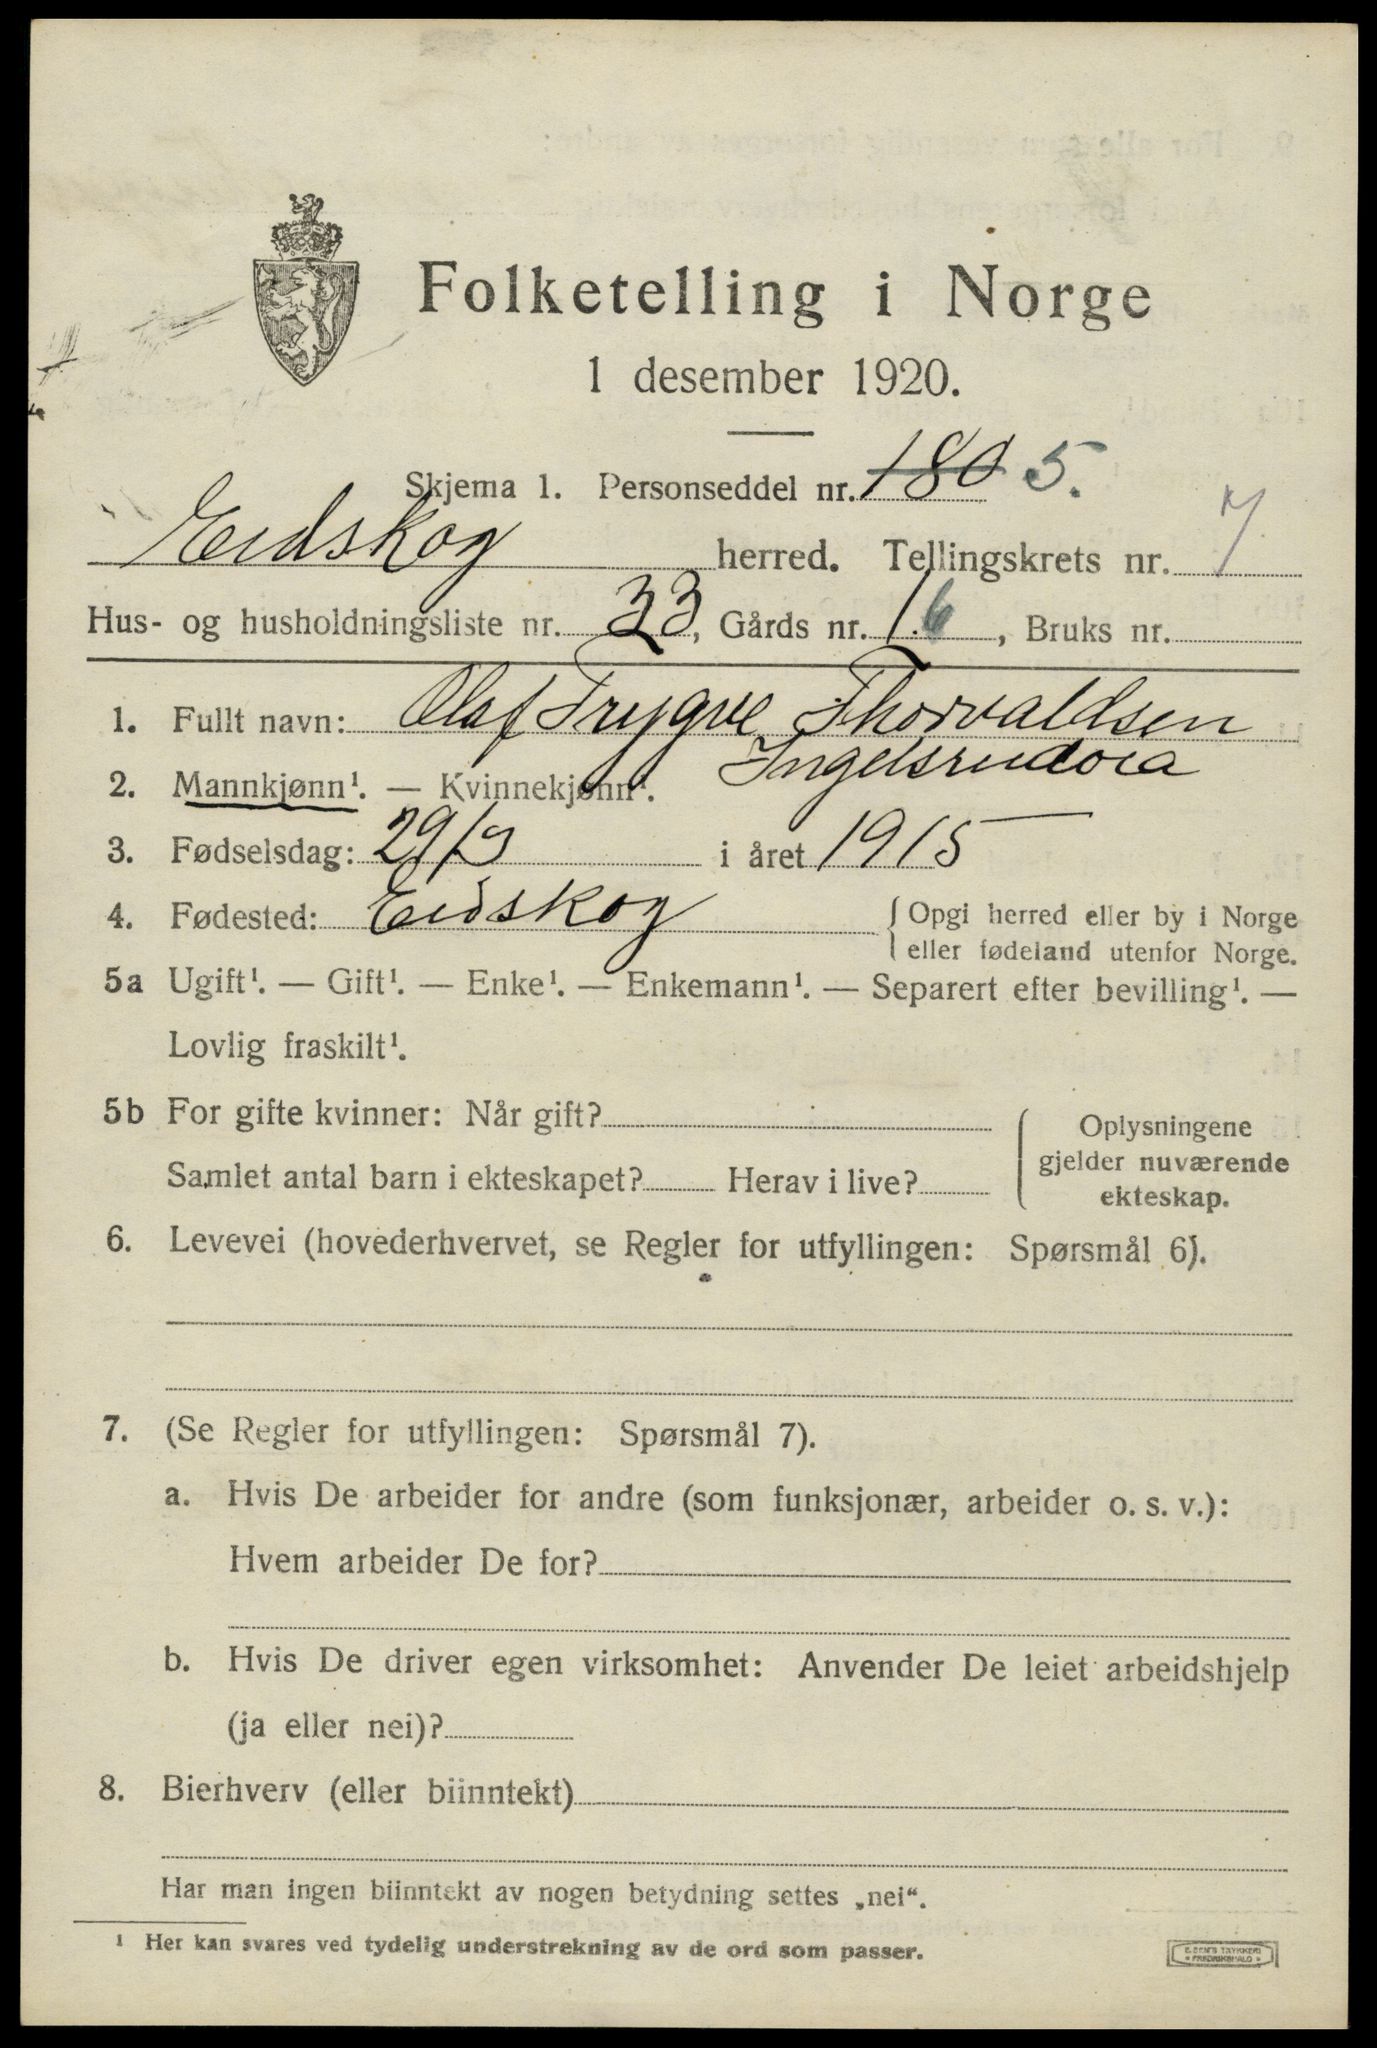 Folketelling i Norge
1 desember 1920.
Skjema 1. Personseddel nr. 180 5.
Eidskog herred. Tellingskrets nr. 7
Hus- og husholdningsliste nr. 33, Gårds nr. 16, Bruks nr.
1. Fullt navn: Olaf Trygve Thorvaldsen
2. Mannkjønn¹. — Kvinnekjønn¹.
3. Fødselsdag: 29/3 i året 1915
4. Fødested: Eidskog { Opgi herred eller by i Norge
eller fødeland utenfor Norge.
5a Ugift¹. — Gift¹. — Enke¹. — Enkemann¹. — Separert efter bevilling¹. —
Lovlig fraskilt¹.
5b For gifte kvinner: Når gift? Oplysningene
gjelder nuværende
Samlet antal barn i ekteskapet? Herav i live? ekteskap.
6. Levevei (hovederhvervet, se Regler for utfyllingen: Spørsmål 6).
7. (Se Regler for utfyllingen: Spørsmål 7).
a. Hvis De arbeider for andre (som funksjonær, arbeider o. s. v.):
Hvem arbeider De for?
b. Hvis De driver egen virksomhet: Anvender De leiet arbeidshjelp
(ja eller nei)?
8. Bierhverv (eller biinntekt)
Har man ingen biinntekt av nogen betydning settes „nei“.
¹ Her kan svares ved tydelig understrekning av de ord som passer.